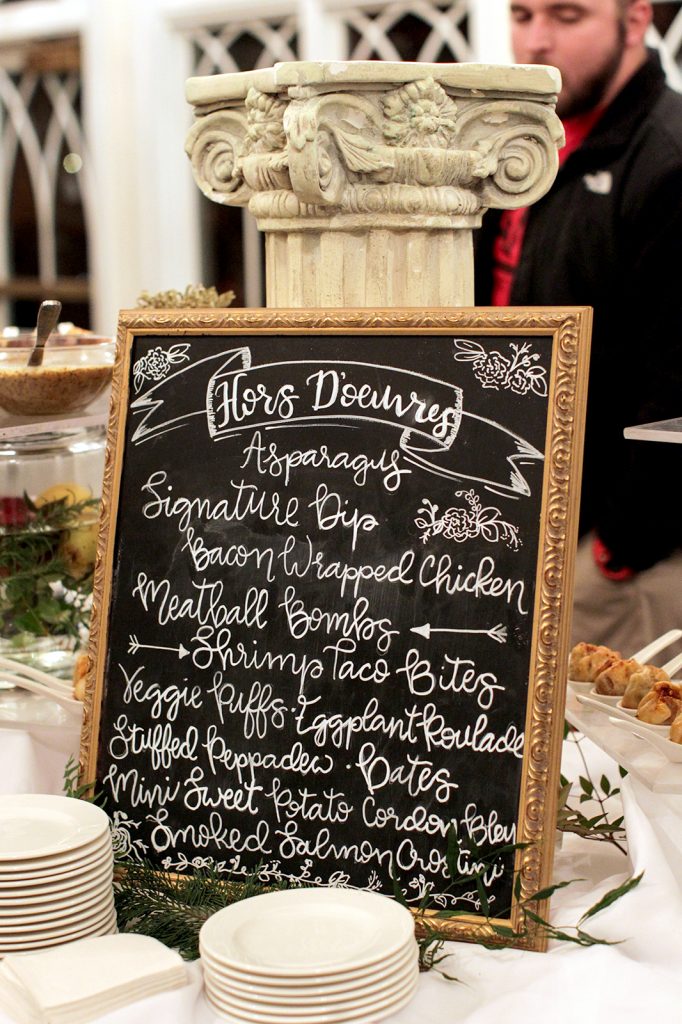 Hors D'oeuvres
Asparagus
Signature Dip
Bacon Wrapped Chicken
Meatball Bombs
Shrimp Taco Bites
Veggie Puffs · Eggplant Roulade
Stuffed Peppadew · Dates
Mini Sweet Potato Cordon Bleu
Smoked Salmon Crostini